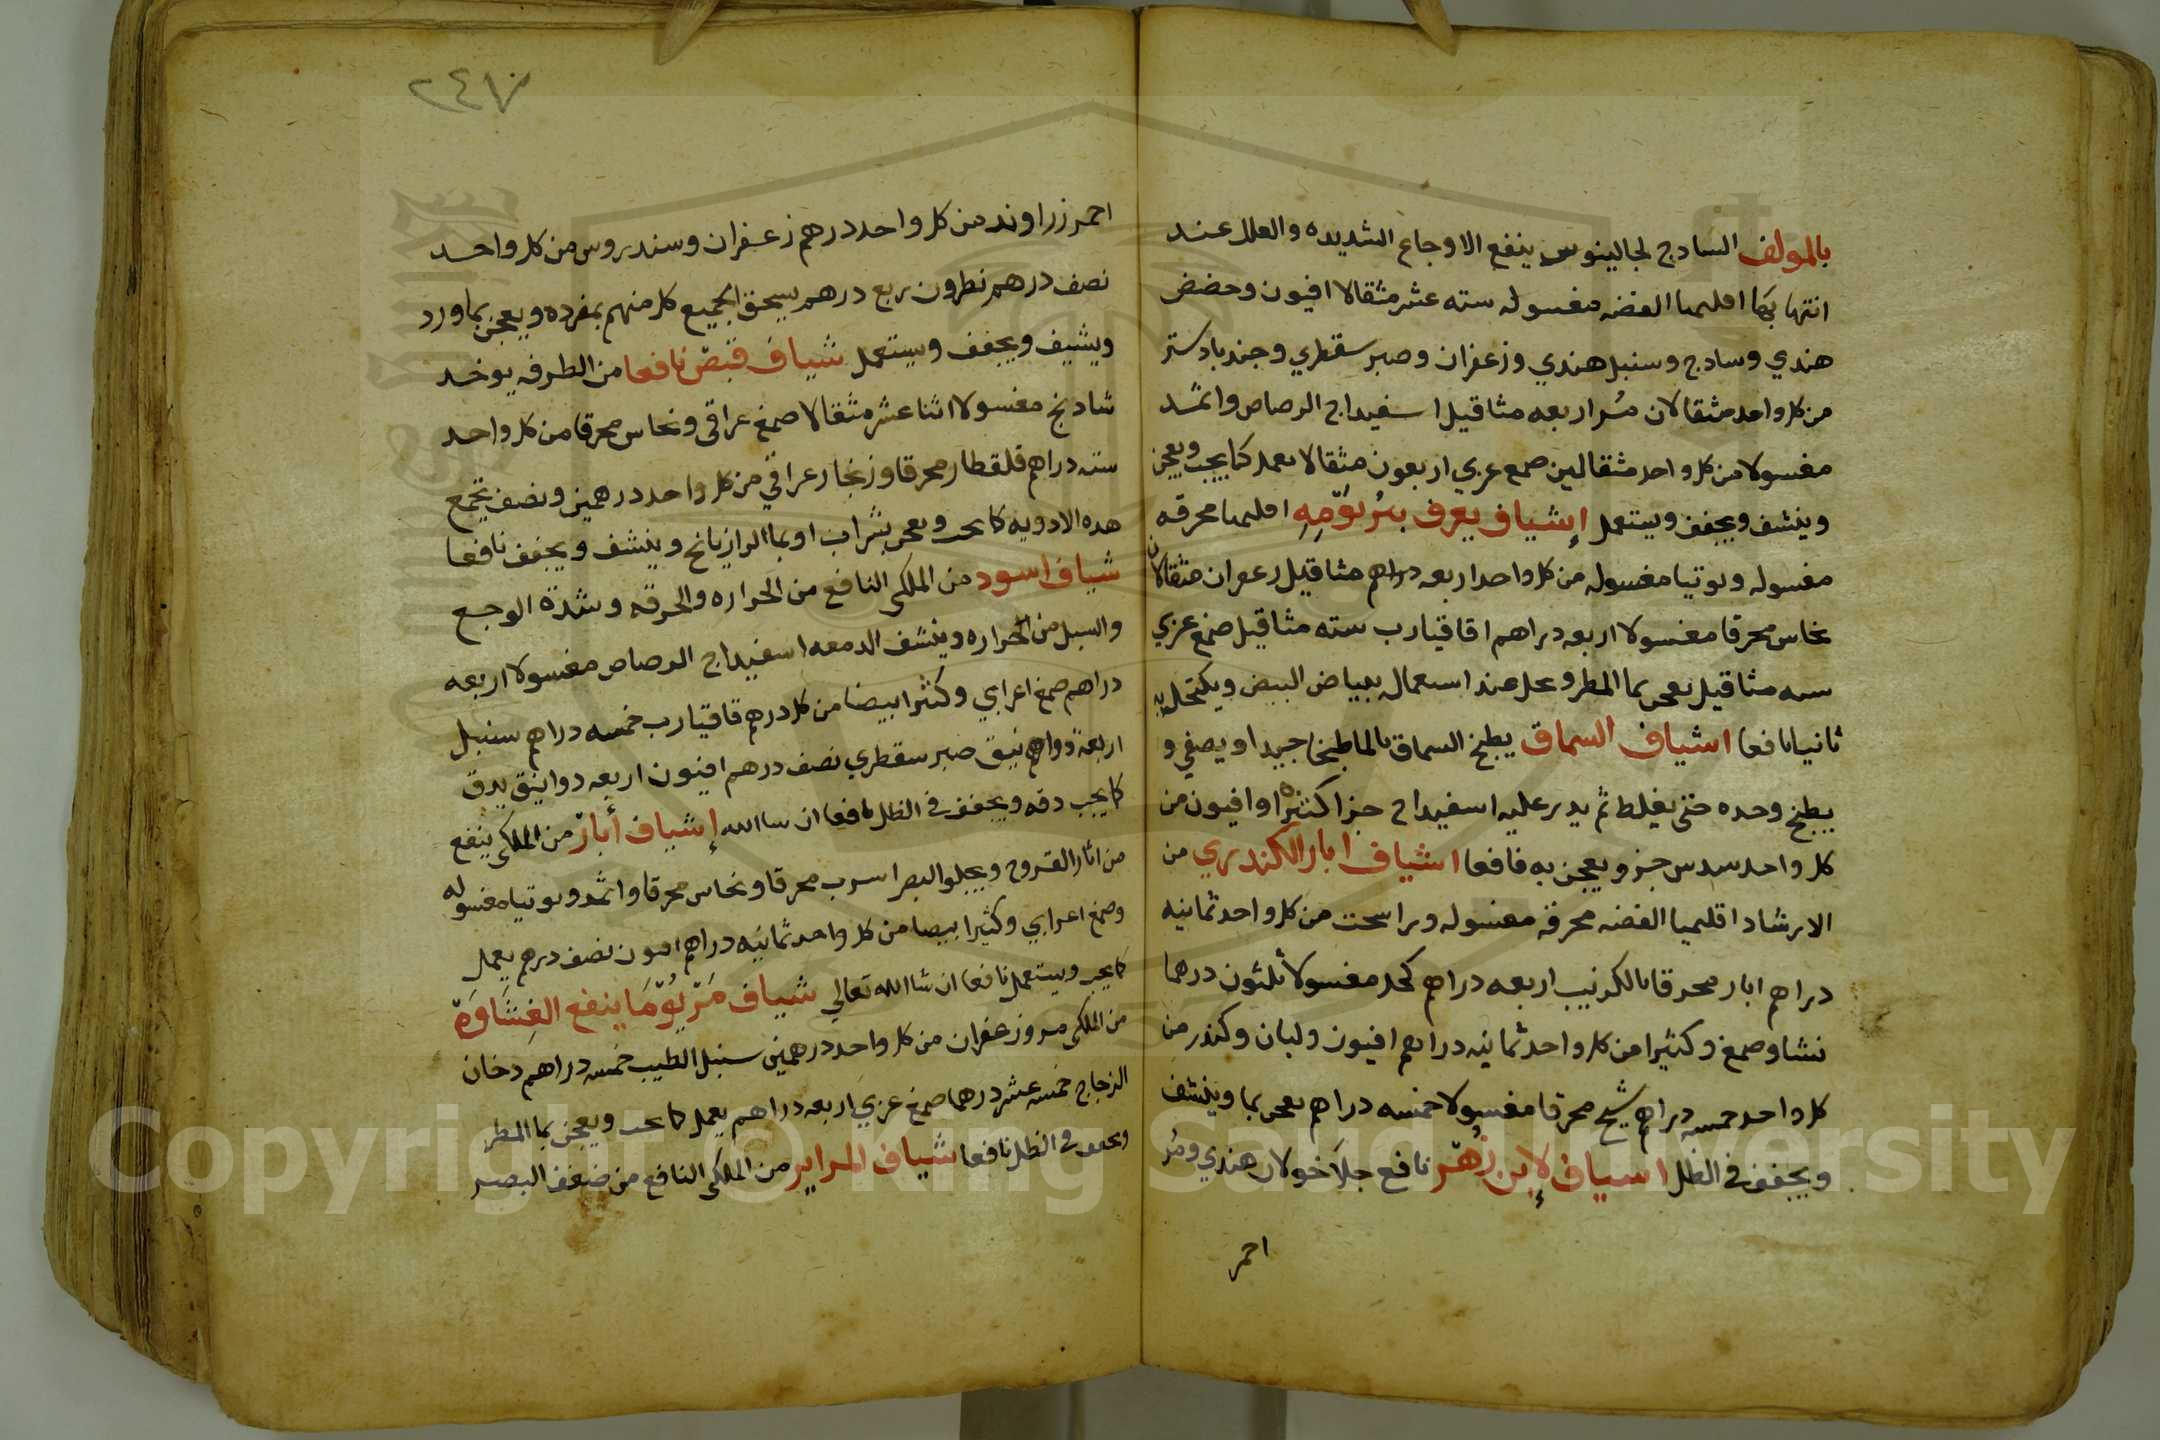 بالمولف السادج لجالينوس ينفع الاوجاع الشديده والعلل عند
انتها بها اقليميا الفضه مغسوله سته عشر مثقالا افيون وحضض
هندي وسادج وسنبل هندي وزعفران وصبر سقطري وجندبادستر
من كل واحد مثقالان مُر اربعه مثاقيل اسفيداج الرصاص واثمد
مغسولا من كل واحد مثقالين صمغ عربي اربعون مثقالا يعمل كما يجب ويعجن
وينشف ويجفف ويستعمل إشياف يعرف اقليميا محرقه
مغسوله وتوتيا مغسوله من كل واحد اربعه دراهم مثاقيل زعفران مثقالان
نحاس محرقا مغسولا اربعه دراهم اقاقيا رب سته مثاقيل صمغ عربي
سته مثاقيل يعجن بما المطر ويحل عند استعماله ببياض البيض ويكتحل به
ثانيا نافعا اشياف السماق يطبخ السماق بالما طبخا جيدا ويصفي و
يطبخ وحده حتى يغلط ثم يدر عليه اسفيداج جزا كثيرا وافيون من
كل واحد سدس جز ويعجن به فافعا اشياف ابار الكندري من
الارشاد اقليميا الفضه محرقه مغسوله وراسخت من كل واحد ثمانيه
دراهم ابار محرقا بالكرنيب اربعه دراهم كحل مغسولا ثلثون درهما
نشا وصمغ وكثيرا من كل واحد ثمانيه دراهم افيون ولبان وكندر من
كل واحد خمسه دراهم شيح محرقا مغسولا خمسه دراهم يعجن بما وينشف
ويجفف في الظل اسياف لإبن زُهّر نافع جلا خولان هندي ومُر
احمر
٢٤٧
احمر زراوند من كل واحد درهم زعفران وسندروس من كل واحد
نصف درهم نطرون ربع درهم يسحق الجميع كل منهم بمفرده ويعجن بماورد
ويشيف ويجفف ويستعمل شياف قبض نافعا من الطرفه يوخد
شادنج مغسولا اثنا عشر مثقالا صمغ عراقي ونحاس محرقا من كل واحد
سته دراهم قلقطار محرقا وزنجار عراقي من كل واحد درهمين ونصف تجمع
هده الادويه كما يجب ويعجن بشراب او بما الرازيانج وينشف ويجفف نافعا
شياف اسود من الملكى النافع من الحراره والحرقه وشدة الوجع
والسبل من الحراره وينشف الدمعه اسفيداج الرصاص مغسولا اربعه
دراهم صمغ اعرابي وكثيرا بيضا من كل درهم قاقيا رب خمسه دراهم سنبل
اربعة دوانيق صبر سقطري نصف درهم افيون اربعه دوانيق يدق
كما يجب دقه ويجفف في الظل نافعا ان سا الله إشياف أبار من الملكى ينفع
من اثار القروح ويجلو البصر اسرب محرقا ونحاس محرقا واثمد وتوتيا مغسوله
وصمغ اعرابي وكثيرا بيضا من كل واحد ثمانيه دراهم افيون نصف درهم يعمل
كما يجب ويستعمل نافعا ان شا الله تعالي شياف مَرّيُوّمَا ينفع الغِشَاوَة
من الملكى مر وزعفران من كل واحد درهمين سنبل الطيب خمسه دراهم دخان
الزجاج خمسه عشر درهما صمغ عربي اربعه دراهم يعمل كما يجب ويعجن بما المطر
ويجفف في الظل نافعا شياف المراير من الملكى النافع من ضعف البصر
Copyright © King Saud University